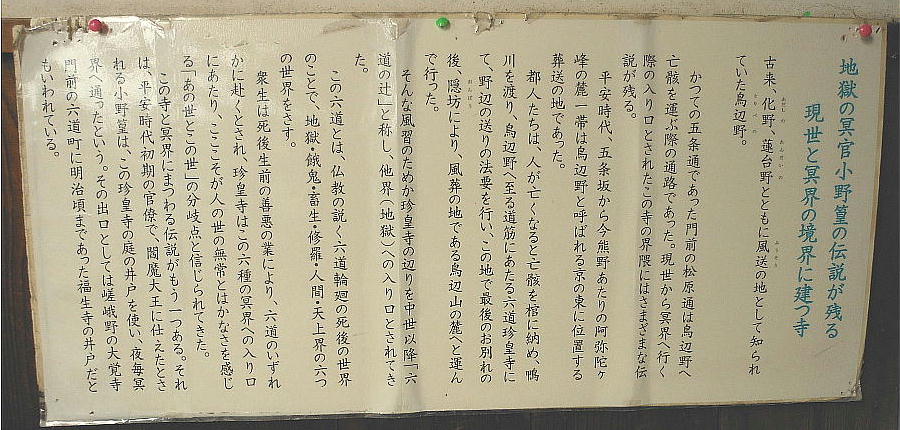 地獄の冥官小野篁の伝説が残る
現世と冥界の境界に建つ寺
古来、化野、蓮台野とともに風送の地として知られ
ていた鳥辺野。
かつての五条通であった門前の松原通は鳥辺野へ
亡骸を運ぶ際の通路であった。現世から冥界へ行く
際の入り口とされたこの寺の界隈にはさまざまな伝
説が残る。
平安時代、五条坂から今熊野あたりの阿弥陀ヶ
峰の麓一帯は鳥辺野と呼ばれる京の東に位置する
葬送の地であった。
都人たちは、人が亡くなると亡骸を棺に納め、鴨
川を渡り、鳥辺野へ至る道筋にあたる六道珍皇寺に
て、野辺の送りの法要を行い、この地で最後のお別れの
後、隠坊により、風葬の地である鳥辺山の麓へと運ん
で行った。
そんな風習のためか珍皇寺の辺りを中世以降「六
道の辻」と称し、他界(地獄)への入り口とされてき
た。
この六道とは、仏教の説く六道輪廻の死後の世界
のことで、地獄・餓鬼・畜生・修羅・人間・天上界の六つ
の世界をさす。
衆生は死後生前の善悪の業により、六道のいずれ
かに赴くとされ、珍皇寺はこの六種の冥界への入り口
にあたり、ここそが人の世の無常とはかなさを感じ
る「あの世とこの世」の分岐点と信じられてきた。
この寺と冥界にまつわる伝説がもう一つある。それ
は、平安時代初期の官僚で、閻魔大王に仕えたとさ
れる小野篁は、この珍皇寺の庭の井戸を使い、夜毎冥
界へ通ったという。その出口としては嵯峨野の大覚寺
門前の六道町に明治頃まであった福生寺の井戸だと
もいわれている。